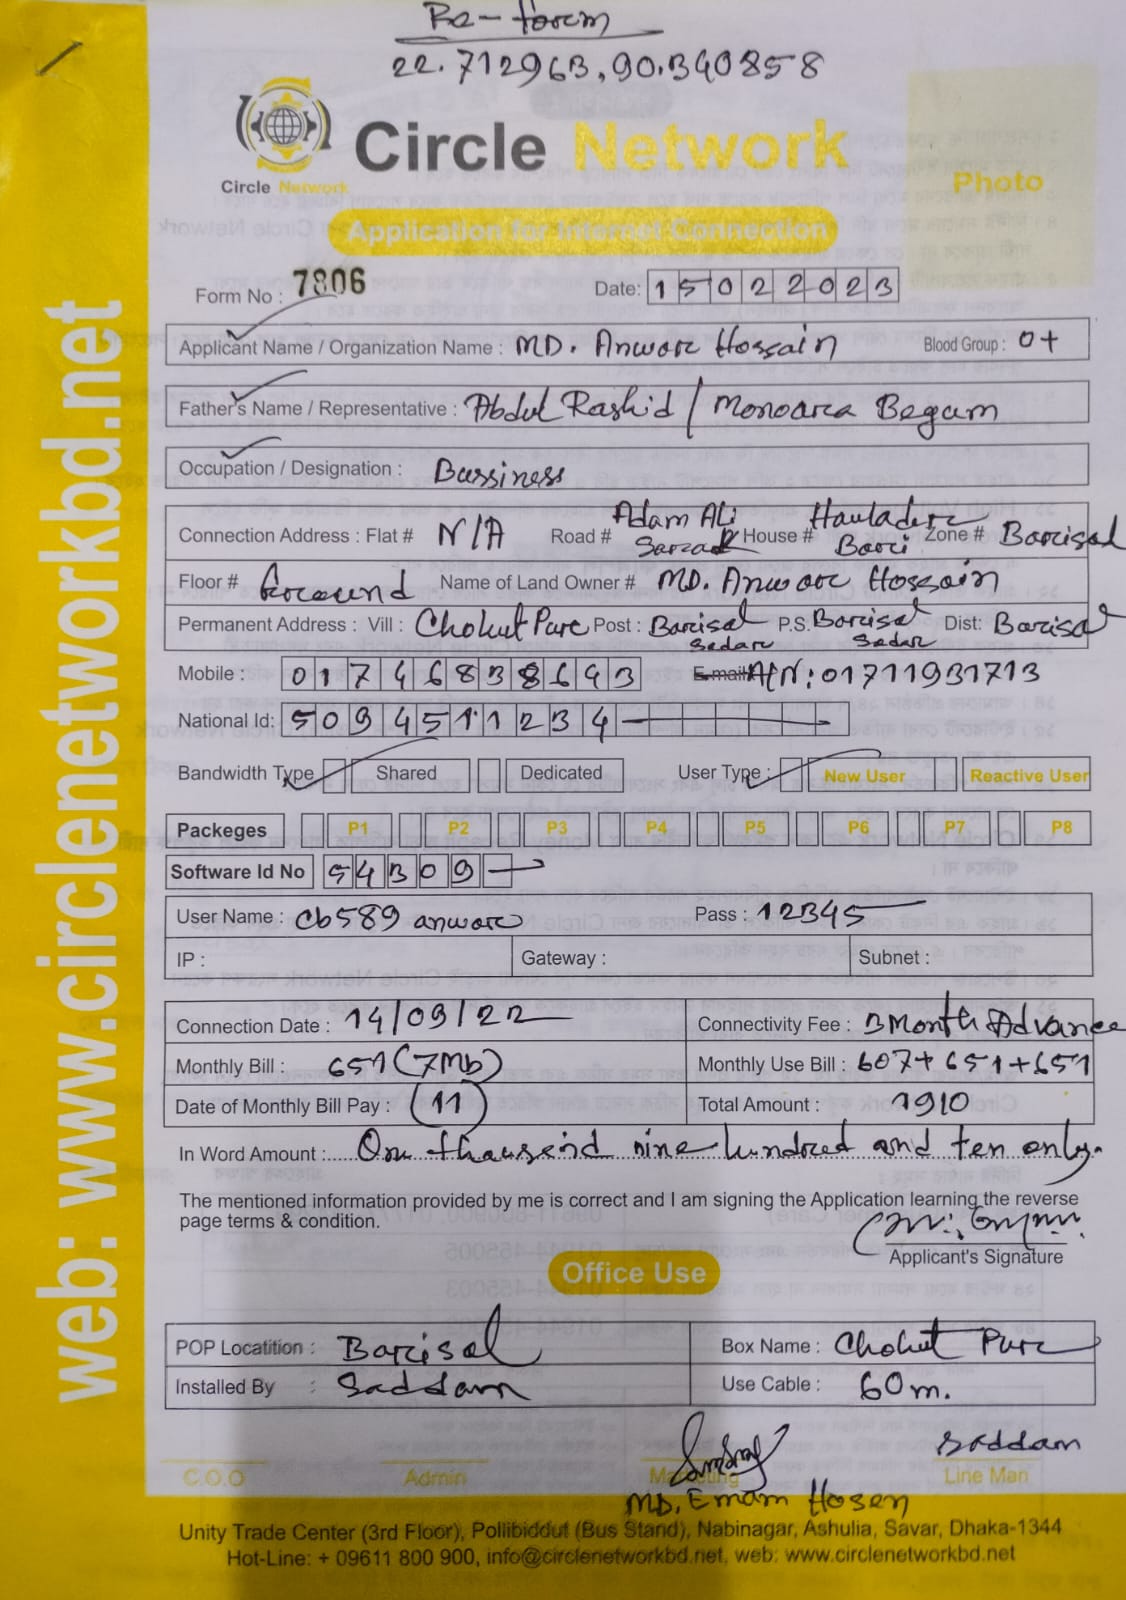 Re-form
22.712963,90.340858
Circle Network
Circle Network
Photo
Application for Internet Connection
Form No : 7806
Date: 15022023
Applicant Name / Organization Name : MD. Anwar Hossain Blood Group : O+
Father's Name / Representative : Abdul Rashid / Monoara Begam
Occupation / Designation : Bussiness
Connection Address : Flat # N/A Road # Adam Ali House # Hauladar Bari Zone # Barisal
Floor # Ground Name of Land Owner # MD. Anwar Hossain
Permanent Address : Vill : Chohut Pur Post : Barisal Sadar P.S. Barisal Sadar Dist: Barisal
Mobile : 01746838693 E-mail A/N: 01711931713
National Id: 5094511234
Bandwidth Type Shared Dedicated User Type : New User Reactive User
Packeges P1 P2 P3 P4 P5 P6 P7 P8
Software Id No 54309
User Name : cb589 anwar Pass : 12345
IP : Gateway : Subnet :
Connection Date : 14/09/22 Connectivity Fee : 3 Month Advance
Monthly Bill : 651 (7Mb) Monthly Use Bill : 607+651+651
Date of Monthly Bill Pay : (11) Total Amount : 1910
In Word Amount : One thausend nine hundred and ten only.
The mentioned information provided by me is correct and I am signing the Application learning the reverse
page terms & condition.
Applicant's Signature
Office Use
POP Locatition : Barisal Box Name : Chohut Pur
Installed By : Saddam Use Cable : 60 m.
Saddam
C.O.O Admin Marketing Line Man
MD. Emam Hosen
Unity Trade Center (3rd Floor), Pollibiddut (Bus Stand), Nabinagar, Ashulia, Savar, Dhaka-1344
Hot-Line: + 09611 800 900, info@circlenetworkbd.net, web: www.circlenetworkbd.net
web: www.circlenetworkbd.net